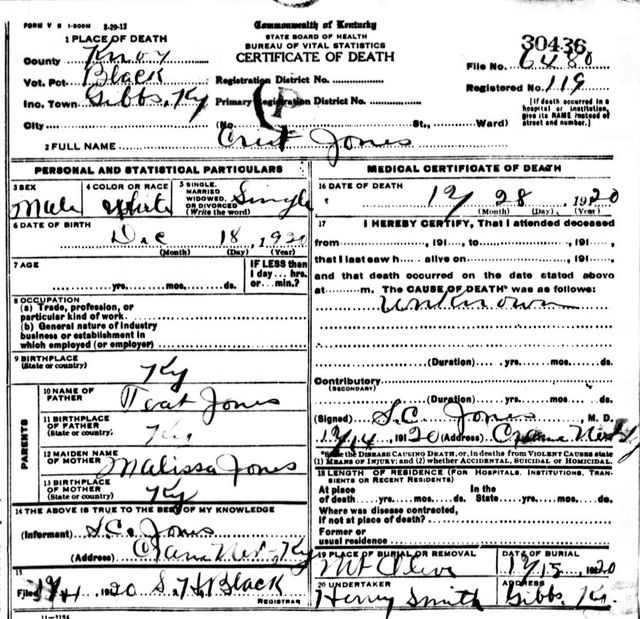 FORM V S 1-500M 2-29-12
Commonwealth of Kentucky
STATE BOARD OF HEALTH
BUREAU OF VITAL STATISTICS
CERTIFICATE OF DEATH
30436
File No. 6480
Registered No. 119
[If death occurred in a hospital or institution, give its NAME instead of street and number.]
1 PLACE OF DEATH
County Knox
Vot. Pct. Black
Inc. Town Gibbs, Ky
City
Registration District No.
Primary Registration District No.
(No. St., Ward)
2 FULL NAME Jones
PERSONAL AND STATISTICAL PARTICULARS
3 SEX Male
4 COLOR OR RACE White
5 SINGLE, MARRIED WIDOWED, OR DIVORCED (Write the word) Single
6 DATE OF BIRTH Dec 18, 1920
(Month) (Day) (Year)
7 AGE
yrs. mos. ds.
IF LESS than 1 day... hrs. or... min.?
8 OCCUPATION
(a) Trade, profession, or particular kind of work
(b) General nature of industry business or establishment in which employed (or employer)
9 BIRTHPLACE (State or country) Ky
PARENTS
10 NAME OF FATHER Jones
11 BIRTHPLACE OF FATHER (State or country) Ky
12 MAIDEN NAME OF MOTHER Malissa Jones
13 BIRTHPLACE OF MOTHER (State or country) Ky
14 THE ABOVE IS TRUE TO THE BEST OF MY KNOWLEDGE
(Informant) S.C. Jones
(Address) Crane Nest, Ky
15
Filed 1920 S. H. Black
REGISTRAR
11-3184
MEDICAL CERTIFICATE OF DEATH
16 DATE OF DEATH 12 28 1920
(Month) (Day) (Year)
17 I HEREBY CERTIFY, That I attended deceased
from , 191 , to , 191 ,
that I last saw h alive on , 191 ,
and that death occurred on the date stated above
at m. The CAUSE OF DEATH* was as follows:
Unknown
(Duration) yrs. mos. ds.
Contributory (SECONDARY)
(Duration) yrs. mos. ds.
(Signed) S.C. Jones, M. D.
12/14 1920 (Address) Crane Nest Ky
*State the DISEASE CAUSING DEATH, or, in deaths from VIOLENT CAUSES state (1) MEANS OF INJURY; and (2) whether ACCIDENTAL, SUICIDAL or HOMICIDAL.
18 LENGTH OF RESIDENCE (FOR HOSPITALS, INSTITUTIONS, TRANSIENTS OR RECENT RESIDENTS)
At place of death yrs. mos. ds. In the State yrs. mos. ds.
Where was disease contracted, if not at place of death?
Former or usual residence
19 PLACE OF BURIAL OR REMOVAL Mt Olive
DATE OF BURIAL 12/15 1920
20 UNDERTAKER Henry Smith
ADDRESS Gibbs, Ky.